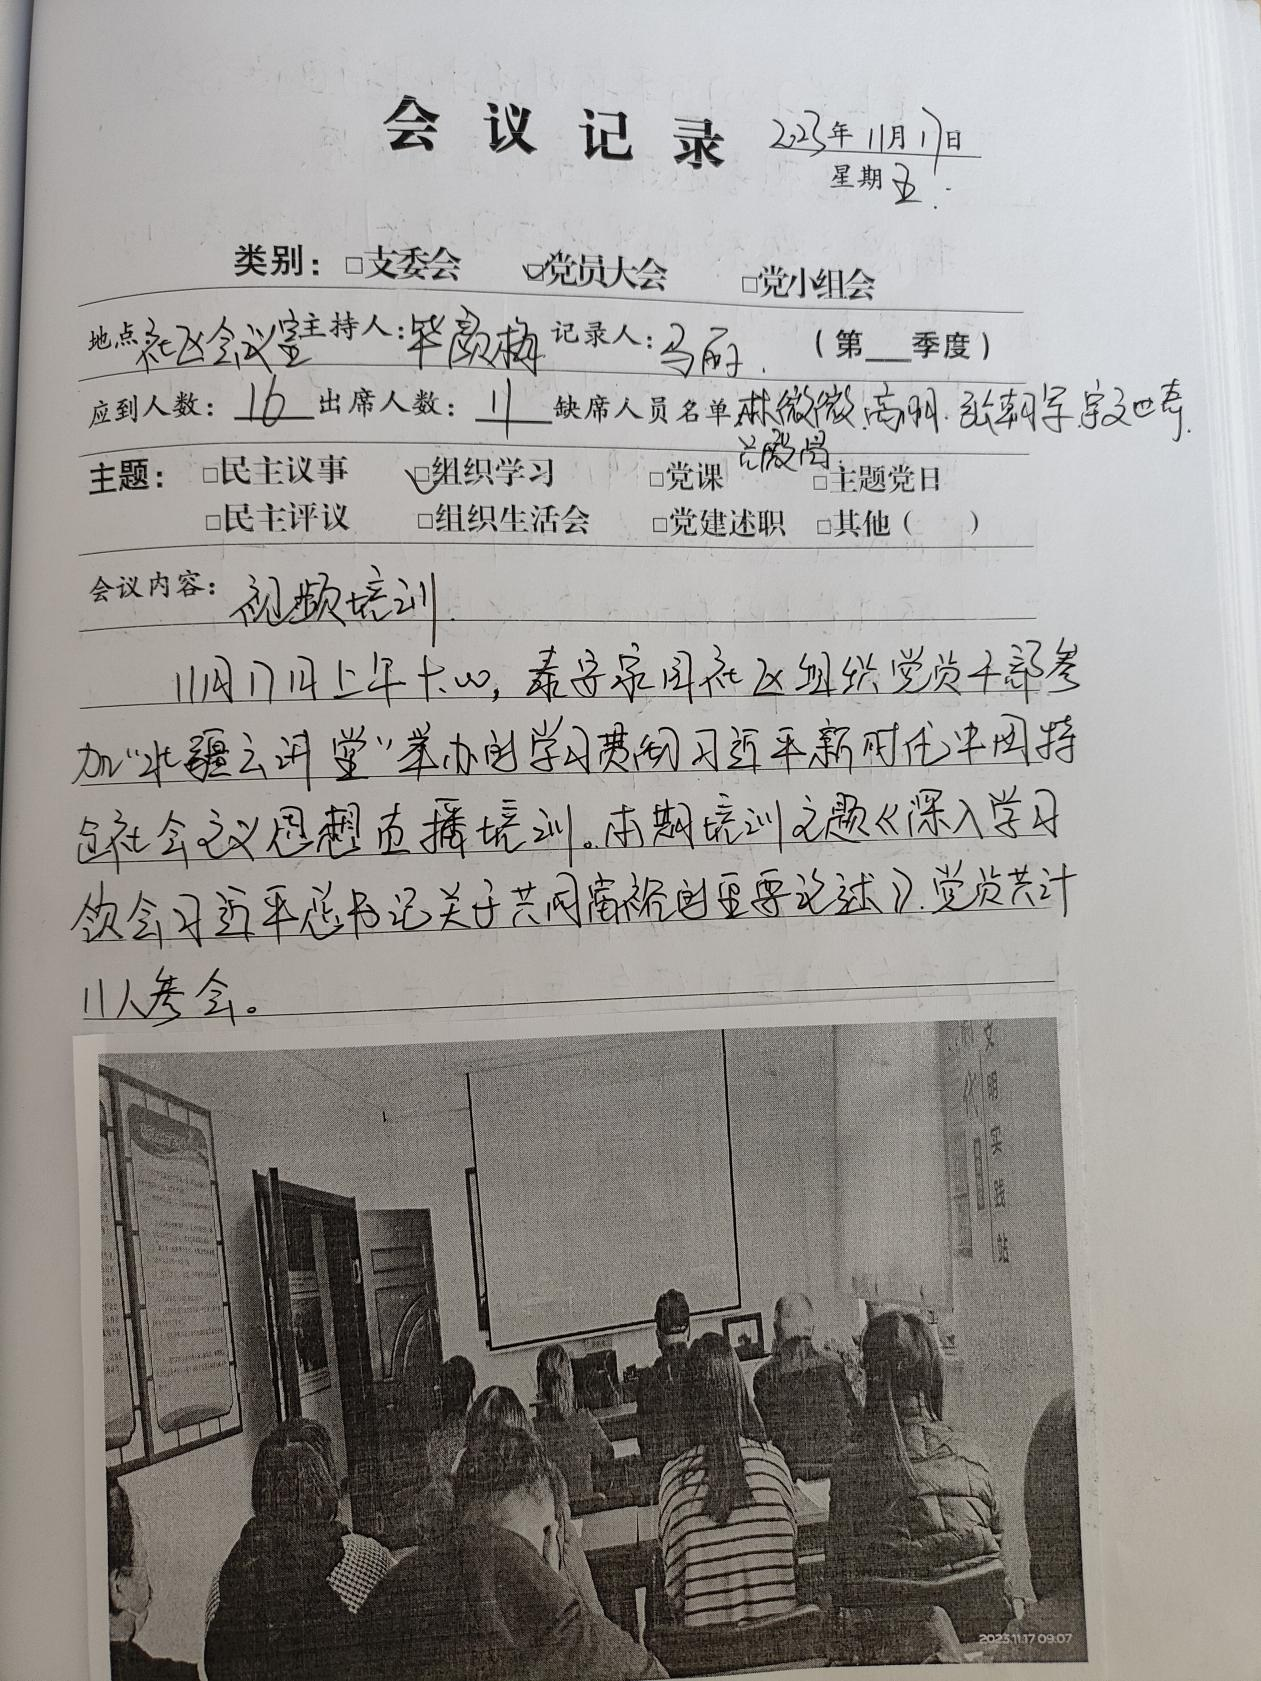 会议记录 2023年11月17日
星期五.
类别: □支委会 ☑党员大会 □党小组会
地点 社区会议室 主持人: 毕颜梅 记录人: 马丽. (第___季度)
应到人数: 16 出席人数: 11 缺席人员名单 林微微.高明.张朝宇.宇文世奇.
殿周.
主题: □民主议事 ☑组织学习 □党课 □主题党日
□民主评议 □组织生活会 □党建述职 □其他( )
会议内容: 视频培训.
11月17日上午十:00, 泰安家园社区组织党员干部参
加“北疆云讲堂”举办的学习贯彻习近平新时代中国特
色社会主义思想直播培训。本期培训主题《深入学习
领会习近平总书记关于共同富裕的重要论述》.党员共计
11人参会。
文明实践站
代
2023.11.17 09:07